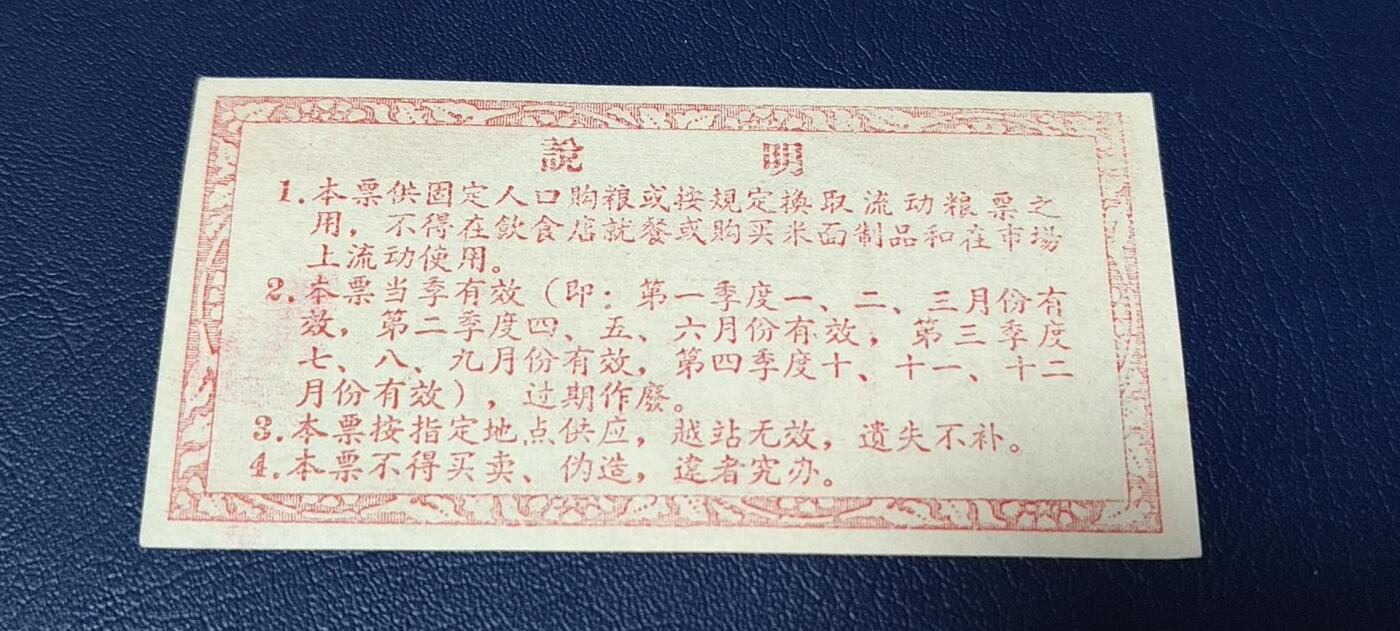 說 明
1. 本票供固定人口购粮或按規定換取流动粮票之
用，不得在飲食店就餐或购买米面制品和在市場
上流动使用。
2. 本票当季有效（即：第一季度一、二、三月份有
效，第二季度四、五、六月份有效，第三季度
七、八、九月份有效，第四季度十、十一、十二
月份有效），过期作廢。
3. 本票按指定地点供应，越站无效，遺失不补。
4. 本票不得买卖、伪造，違者究办。